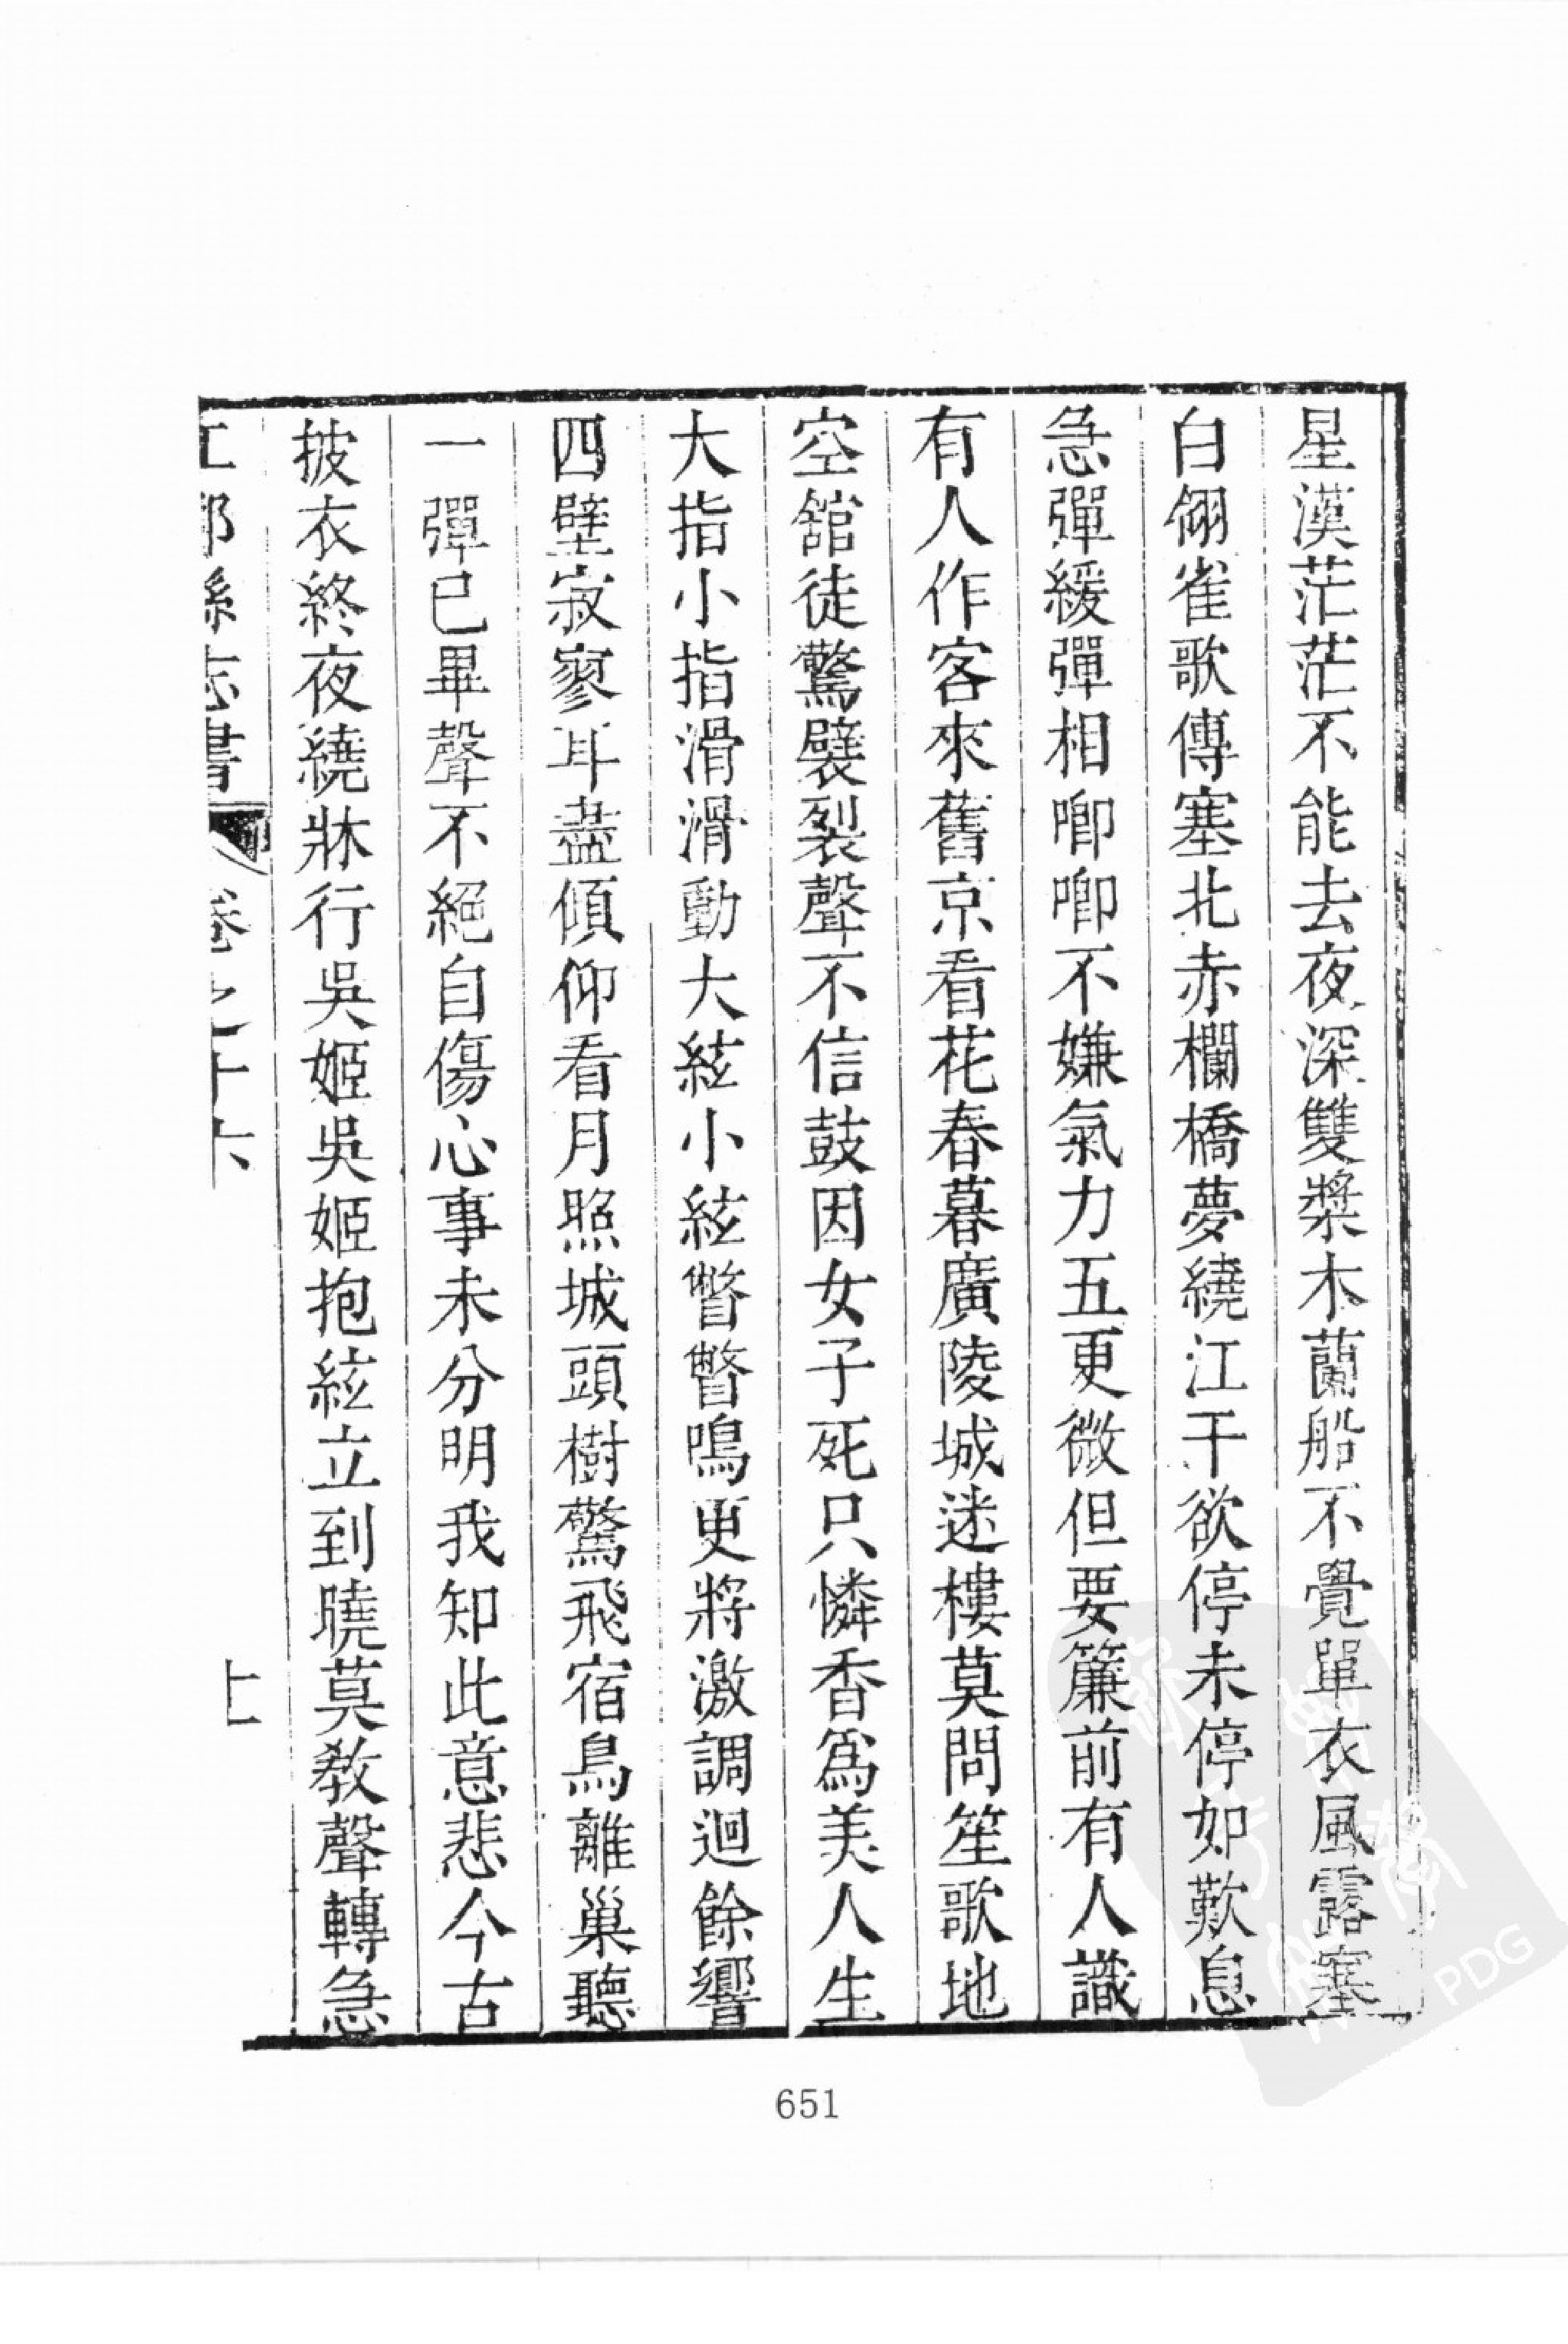 星漢茫茫不能去夜深雙槳木蘭船不覺單衣風露塞
白翎雀歌傳塞北赤欄橋夢繞江干欲停未停如歎息
急彈緩彈相唧唧不嫌氣力五更微但要簾前有人識
有人作客來舊京看花春暮廣陵城迷樓莫問笙歌地
空舘徒驚襞裂聲不信鼓因女子死只憐香爲美人生
大指小指滑滑動大絃小絃瞥瞥鳴更將激調迴餘響
四壁寂寥耳盡傾仰看月照城頭樹驚飛宿鳥離巢聽
一彈已畢聲不絕自傷心事未分明我知此意悲今古
披衣終夜繞牀行吳姬吳姬抱絃立到曉莫教聲轉急
江都縣志書 卷之十六
651
PDG